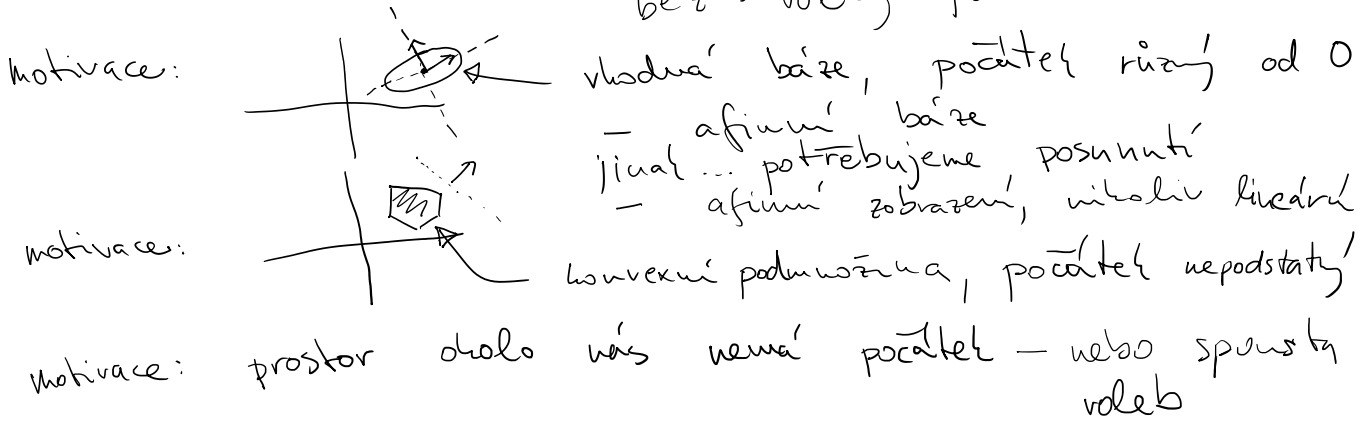 bez
motivace: vhodná báze, počátek různý od 0
– afinní báze
jinak ... potřebujeme posunutí
– afinní zobrazení, nikoliv lineární
motivace: konvexní podmnožina, počátek nepodstatný
motivace: prostor okolo nás nemá počátek – nebo spousta
voleb